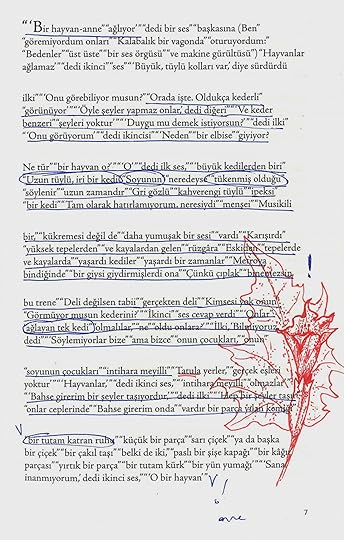 “‘Bir hayvan-anne”“ağlıyor’”“dedi bir ses”“başkasına (Ben”
“göremiyordum onları”“Kalabalık bir vagonda”“oturuyordum:”
“Bedenler”“üst üste”“bir ses örgüsü”“ve makine gürültüsü”) “‘Hayvanlar
ağlamaz’”“dedi ikinci”“ses”“‘Büyük, tüylü kolları var,’ diye sürdürdü
ilki”“‘Onu görebiliyor musun?”“Orada işte. Oldukça kederli”
“görünüyor’”“‘Öyle şeyler yapmaz onlar,’ dedi diğeri”“‘Ve keder
benzeri”“şeyleri yoktur’”“‘Duygu mu demek istiyorsun?’”“dedi ilki”
“‘Onu görüyorum’”“dedi ikincisi”“‘Neden”“bir elbise”“giyiyor?
Ne tür”“bir hayvan o?’”“‘O’”“dedi ilk ses,”“‘büyük kedilerden biri”
“Uzun tüylü, iri bir kedi. Soyunun”“neredeyse”“tükenmiş olduğu”
“söylenir”“uzun zamandır”“Gri gözlü”“kahverengi tüylü”“ipeksi”
“bir kedi”“Tam olarak hatırlamıyorum, neresiydi”“menşei”“Musikili
bir,”“kükremesi değil de”“daha yumuşak bir sesi”“vardı”“Karışırdı”
“yüksek tepelerden”“ve kayalardan gelen”“rüzgâra”“Eskiden”“tepelerde
ve kayalarda”“yaşardı kediler”“yaşardı bir zamanlar”“Metroya
bindiğinde”“bir giysi giydirmişlerdi ona”“Çünkü çıplak”“binemezsin
bu trene”“Deli değilsen tabii”“gerçekten deli”“Kimsesi yok onun”
“Görmüyor musun kederini?’”“İkinci”“ses cevap verdi”“‘Onlar”
“ağlayan tek kedi”“olmalılar,”“ne”“oldu onlara?’”“İlki, ‘Bilmiyoruz,’
dedi”“‘Söylemiyorlar bize”“ama bizce”“onun çocukları,”“onun”
“soyunun çocukları”“intihara meyilli”“Tatula yerler,”“gerçek eşleri
yoktur’”“‘Hayvanlar,’”“dedi ikinci ses,”“‘intihara meyilli”“olmazlar’”
“‘Bahse girerim bir şeyler taşıyordur,’”“dedi ilki”“‘Hep bir şeyler taşır”
“onlar ceplerinde”“Bahse girerim onda”“vardır bir parça yılan kemiği
“bir tutam katran ruhu”“küçük bir parça”“sarı çiçek”“ya da başka
bir çiçek”“bir çakıl taşı”“belki de iki,”“paslı bir şişe kapağı”“bir kâğıt
parçası”“yırtık bir parça”“bir tutam kürk”“bir yün yumağı”“‘Sana
inanmıyorum,’ dedi ikinci ses,”“‘O bir hayvan’”
7